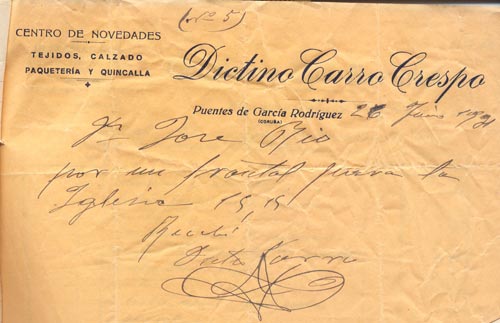 (Nº 5)
CENTRO DE NOVEDADES
TEJIDOS, CALZADO
PAQUETERÍA Y QUINCALLA
Dictino Carro Crespo
Puentes de García Rodríguez 26 Junio 1931
(CORUÑA)
Dn Jose Rio
por un frontal para la
Iglesia 15,15
Recibí
Dicto Carro